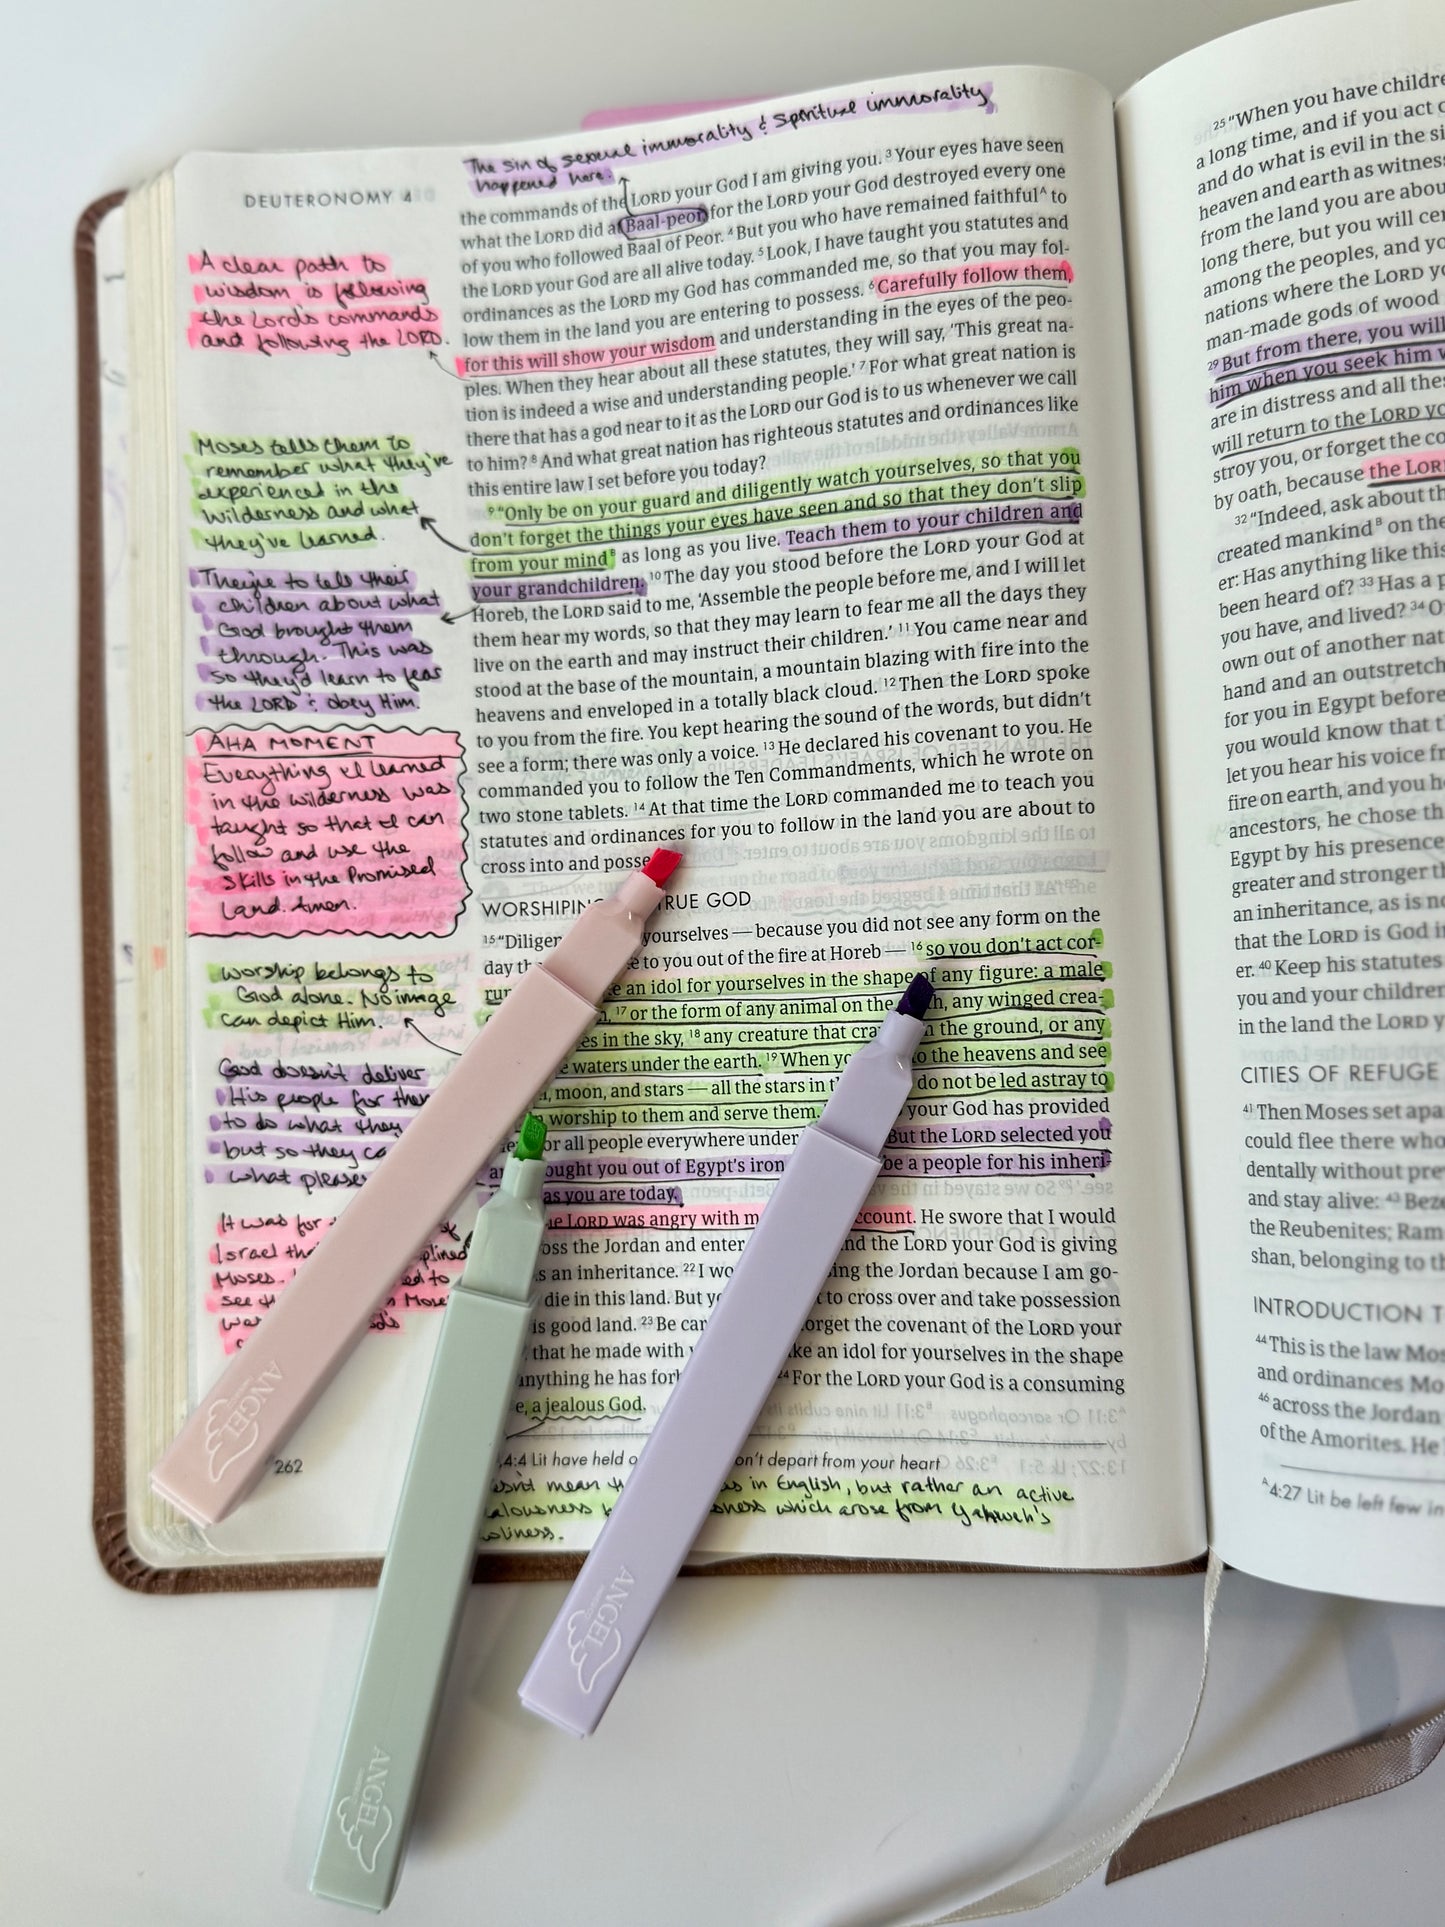 The sin of sexual immorality & spiritual immorality
happened here.
DEUTERONOMY 4
A clear path to
wisdom is following
the Lord's commands
and following the LORD.
Moses tells them to
remember what they've
experienced in the
wilderness and what
they've learned.
They're to tell their
children about what
God brought them
through. This was
so they'd learn to fear
the LORD & obey Him.
AHA MOMENT
Everything I learned
in the wilderness was
taught so that I can
follow and use the
skills in the Promised
Land. Amen.
Worship belongs to
God alone. No image
can depict Him.
God doesn't deliver
His people for them
to do what they
but so they
what
It was for
Israel
Moses.
see
262
the commands of the LORD your God I am giving you. 3 Your eyes have seen
what the LORD did at Baal-peor, for the LORD your God destroyed every one
of you who followed Baal of Peor. 4 But you who have remained faithful^A to
the LORD your God are all alive today. 5 Look, I have taught you statutes and
ordinances as the LORD my God has commanded me, so that you may fol-
low them in the land you are entering to possess. 6 Carefully follow them,
for this will show your wisdom and understanding in the eyes of the peo-
ples. When they hear about all these statutes, they will say, ‘This great na-
tion is indeed a wise and understanding people.’ 7 For what great nation is
there that has a god near to it as the LORD our God is to us whenever we call
to him? 8 And what great nation has righteous statutes and ordinances like
this entire law I set before you today?
9 “Only be on your guard and diligently watch yourselves, so that you
don’t forget the things your eyes have seen and so that they don’t slip
from your mind^B as long as you live. Teach them to your children and
your grandchildren. 10 The day you stood before the LORD your God at
Horeb, the LORD said to me, ‘Assemble the people before me, and I will let
them hear my words, so that they may learn to fear me all the days they
live on the earth and may instruct their children.’ 11 You came near and
stood at the base of the mountain, a mountain blazing with fire into the
heavens and enveloped in a totally black cloud. 12 Then the LORD spoke
to you from the fire. You kept hearing the sound of the words, but didn’t
see a form; there was only a voice. 13 He declared his covenant to you. He
commanded you to follow the Ten Commandments, which he wrote on
two stone tablets. 14 At that time the LORD commanded me to teach you
statutes and ordinances for you to follow in the land you are about to
cross into and
WORSHIPING TRUE GOD
15 yourselves — because you did not see any form on the
day to you out of the fire at Horeb — 16 so you don’t act cor-
an idol for yourselves in the shape of any figure: a male
17 or the form of any animal on the any winged crea-
in the sky, 18 any creature that the ground, or any
waters under the earth. 19 When to the heavens and see
moon, and stars — all the stars in do not be led astray to
worship to them and serve them. your God has provided
for all people everywhere under But the LORD selected you
you out of Egypt’s iron be a people for his inheri-
as you are today.
LORD was angry with account. He swore that I would
the Jordan and enter the LORD your God is giving
as an inheritance. 22 I the Jordan because I am go-
die in this land. But to cross over and take possession
is good land. 23 Be forget the covenant of the LORD your
that he made with an idol for yourselves in the shape
anything he has 24 For the LORD your God is a consuming
a jealous God.
4:4 Lit have held don’t depart from your heart
mean in English, but rather an active
which arose from Yahweh's
25 “When you have
a long time, and if you act
and do what is evil in the
heaven and earth as
from the land you are
long there, but you will
among the peoples, and
nations where the LORD
man-made gods of wood
29 But from there, you will
him when you seek him
are in distress and all
will return to the LORD
stroy you, or forget the
by oath, because the LORD
32 “Indeed, ask about
created mankind^B on the
er: Has anything like this
been heard of? 33 Has a
you have, and lived? 34
own out of another
hand and an
for you in Egypt before
you would know that
let you hear his voice
fire on earth, and you
ancestors, he chose
Egypt by his presence
greater and stronger
an inheritance, as is
that the LORD is God
er. 40 Keep his statutes
you and your children
in the land the LORD
CITIES OF REFUGE
41 Then Moses set
could flee there who
dentally without
and stay alive: 43
the Reubenites;
shan, belonging to
INTRODUCTION
44 This is the law
and ordinances
46 across the Jordan
of the Amorites. He
^A4:27 Lit be left few in
ANGEL
ANGEL
ANGEL